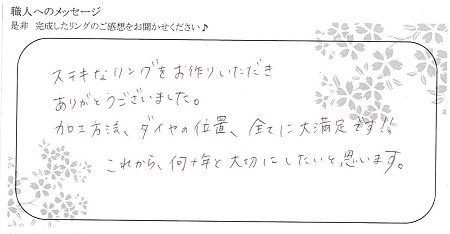 職人へのメッセージ
是非 完成したリングのご感想をお聞かせください♪
ステキなリングをお作りいただき
ありがとうございました。
加工方法、ダイヤの位置、全てに大満足です!!
これから、何十年と大切にしたいと思います。